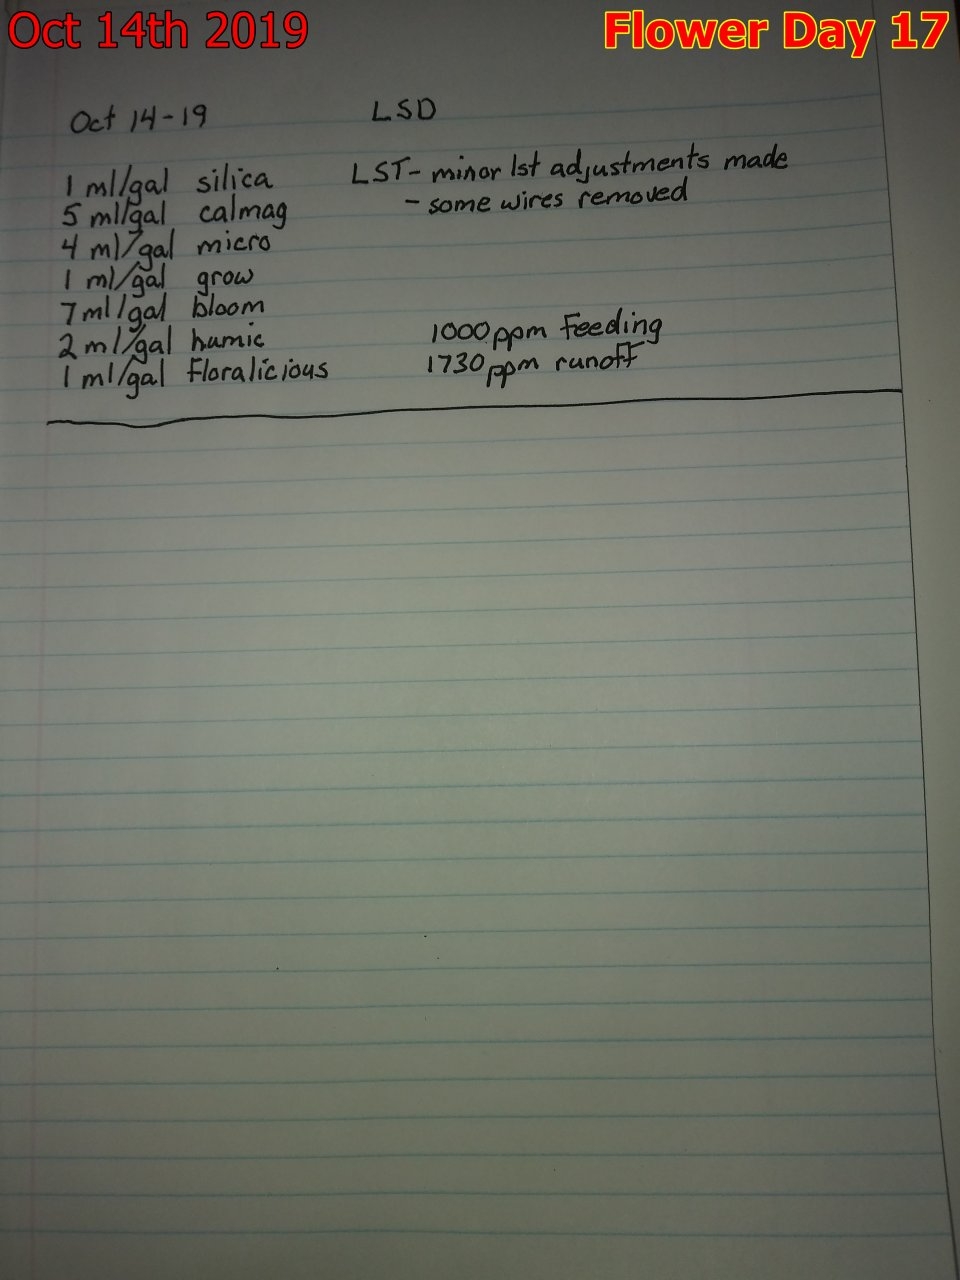 Oct 14th 2019 Flower Day 17
Oct 14-19 LSD
1 ml/gal silica LST- minor lst adjustments made
5 ml/gal calmag - some wires removed
4 ml/gal micro
1 ml/gal grow
7 ml/gal bloom
2 ml/gal humic 1000 ppm Feeding
1 ml/gal Floralicious 1730 ppm runoff